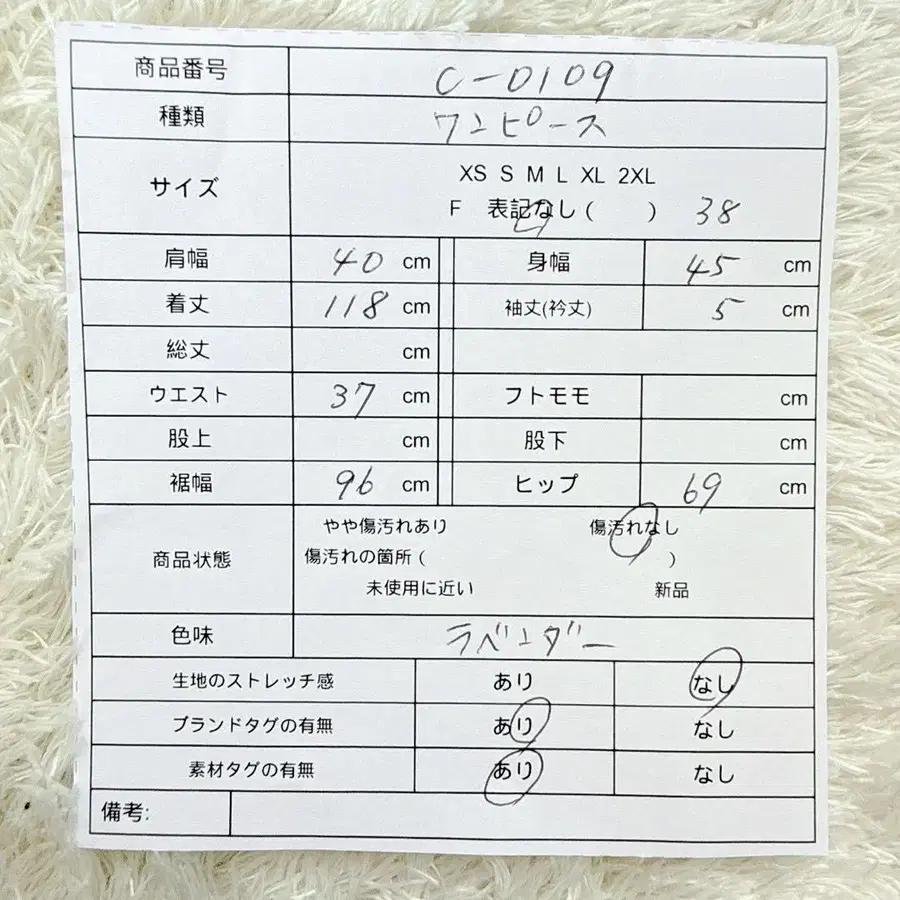 商品番号 C-0109
種類 ワンピース
サイズ XS S M L XL 2XL
F 表記なし( ) 38
肩幅 40 cm 身幅 45 cm
着丈 118 cm 袖丈(衿丈) 5 cm
総丈 cm
ウエスト 37 cm フトモモ cm
股上 cm 股下 cm
裾幅 96 cm ヒップ 69 cm
やや傷汚れあり 傷汚れなし
商品状態 傷汚れの箇所( )
未使用に近い 新品
色味 ラベンダー
生地のストレッチ感 あり なし
ブランドタグの有無 あり なし
素材タグの有無 あり なし
備考: